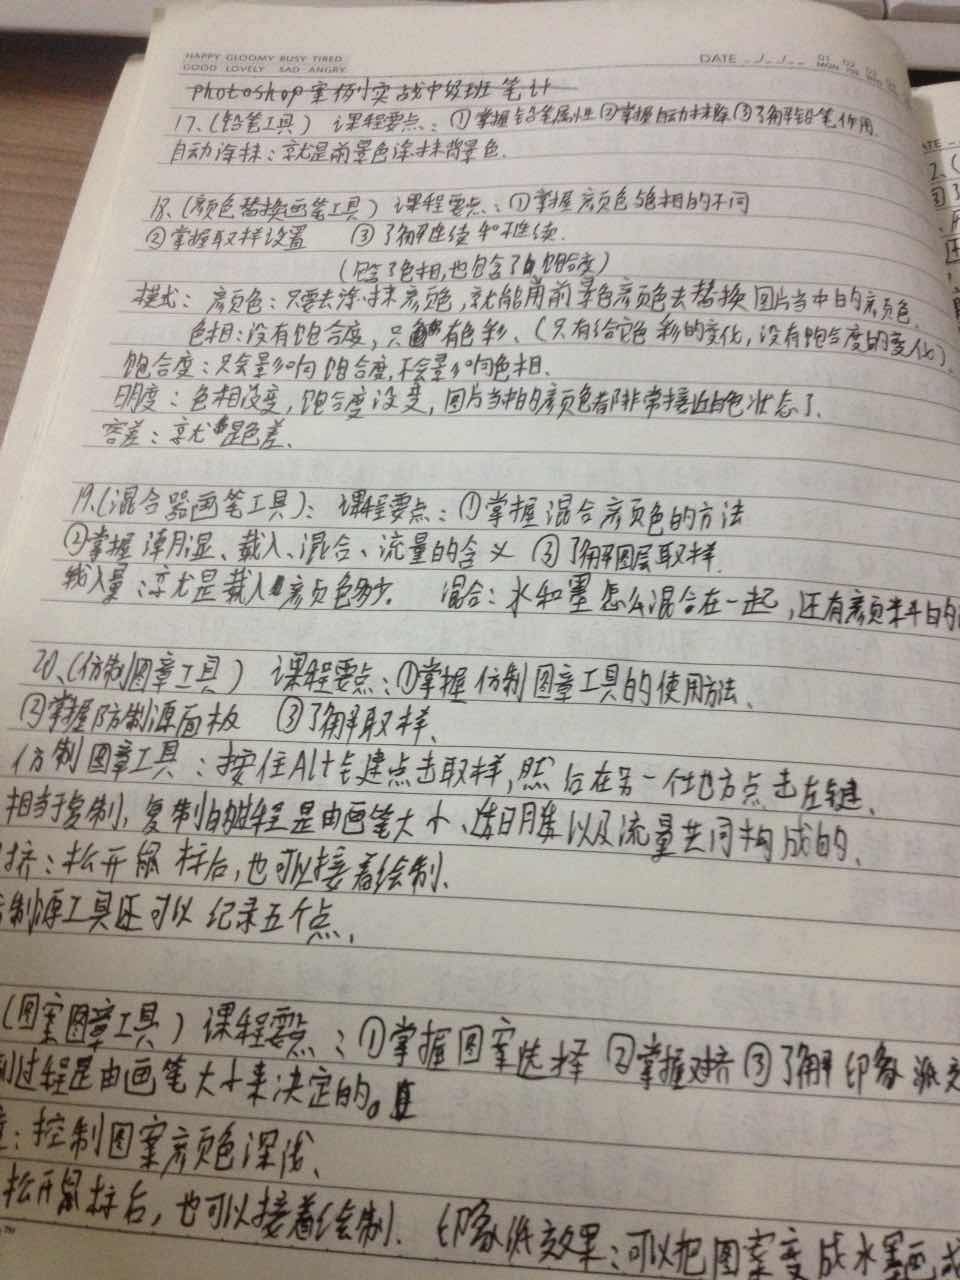 HAPPY GLOOMY BUSY TIRED
GOOD LOVELY SAD ANGRY
DATE
photoshop案例实战中级班笔计
17、(铅笔工具) 课程要点:①掌握铅笔属性②掌握自动抹除③了解铅笔作用.
自动涂抹:就是前景色涂抹背景色.
18、(颜色替换画笔工具) 课程要点:①掌握颜色色相的不同
②掌握取样设置 ③了解连续和不连续.
(包含了色相,也包含了饱合度)
模式:颜色:只要去涂抹颜色,就能用前景色颜色去替换图片当中的颜色.
色相:没有饱合度,只有色彩、(只有给它色彩的变化,没有饱合度的变化)
饱合度:只会影响饱合度,不会影响色相.
明度:色相没变,饱合度没变,图片当中的颜色都非常接近白色状态了.
容差:就是色差.
19.(混合器画笔工具):课程要点:①掌握混合颜色的方法
②掌握潮湿、载入、混合、流量的含义 ③了解图层取样.
载入量:就是载入颜色多少. 混合:水和墨怎么混合在一起,还有颜料的
20、(仿制图章工具) 课程要点:①掌握仿制图章工具的使用方法、
②掌握防制源面板 ③了解取样、
仿制图章工具:按住Alt键点击取样,然后在另一个地方点击左键、
相当于复制、复制的过程是由画笔大小、透明度以及流量共同构成的、
齐:松开鼠标后,也可以接着绘制、
制源工具还可以纪录五个点,
(图案图章工具) 课程要点:①掌握图案选择 ②掌握对齐③了解印象派
制过程是由画笔大小来决定的。
:控制图案颜色深浅、
松开鼠标后,也可以接着绘制. 印象派效果:可以把图案变成水墨画,